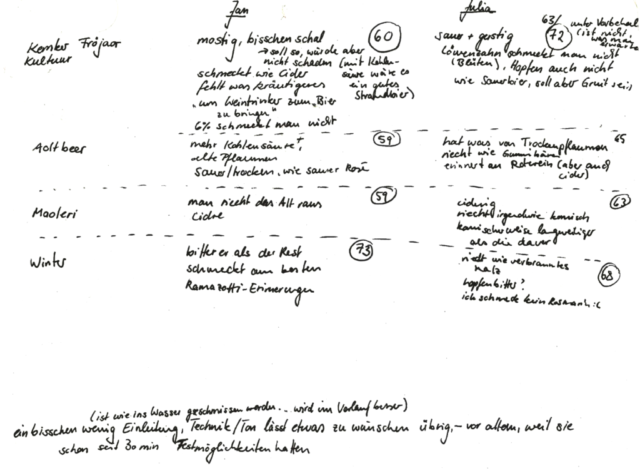 Jan
Julia
Kemker Fröjaor
Kultuur
mostig, bisschen schal
60
→ soll so, würde aber
nicht schaden (mit Kohlen-
säure wäre es
ein gutes
Strandbier)
schmeckt wie Cider
fehlt was kräutigeres
"um Weintrinker zum Bier
zu bringen"
6% schmeckt man nicht
63/
72
unter Vorbehalt
(ist nicht,
was man
erwartet
sauer + gerstig
Löwenzahn schmeckt man nicht
(Blüten), Hopfen auch nicht
wie Sauerbier, soll aber Gruit sein
Aoltbeer
mehr Kohlensäure
alte Pflaumen
sauer/trocken, wie saurer Rosé
59
hat was von Trockenpflaumen
riecht wie Gummibären
erinnert an Rotwein (aber auch
Cider)
65
Maoleri
man riecht das Alt raus
Cidre
59
cidrig
riecht irgendwie komisch
komischerweise langweiliger
als die davor
63
Winter
bitterer als der Rest
schmeckt am besten
Ramazotti-Erinnerungen
73
riecht wie verbranntes
Malz
hopfenbitter?
ich schmecke kein Rosmarin :(
68
(ist wie ins Wasser geschmissen werden... wird im Verlauf besser)
ein bisschen wenig Einleitung, Technik/Ton lässt etwas zu wünschen übrig, - vor allem, weil sie
schon seit 30 min Testmöglichkeiten hatten